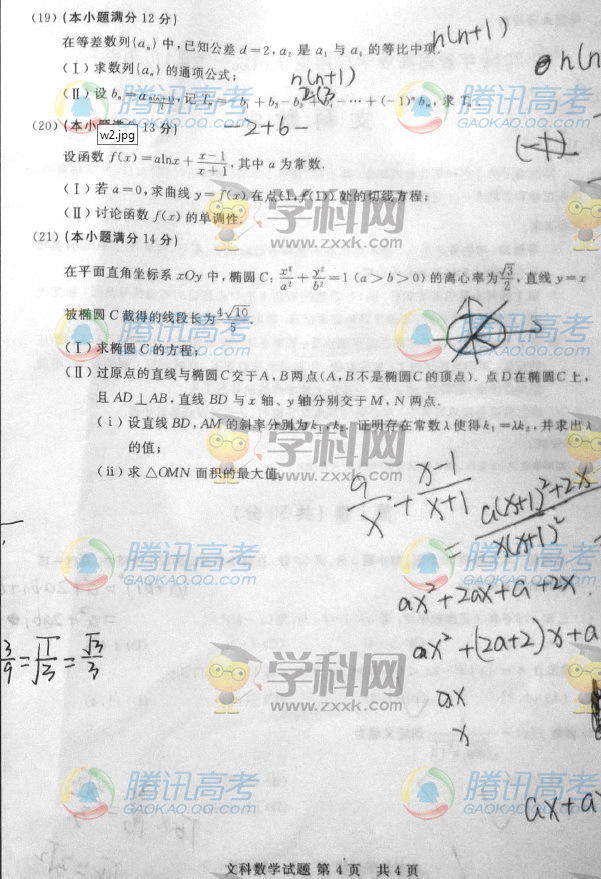 (19) (本小题满分 12 分)
在等差数列{aₙ}中,已知公差 d=2,a₂ 是 a₁ 与 a₄ 的等比中项.
(Ⅰ) 求数列{aₙ}的通项公式;
(Ⅱ) 设 bₙ=a_{n(n+1)/2},记 Tₙ=-b₁+b₂-b₃+b₄-…+(-1)ⁿbₙ,求 Tₙ.
n(n+1)
n(n+1)
-2+6-
(20) (本小题满分 13 分)
w2.jpg
设函数 f(x)=alnx+(x-1)/(x+1),其中 a 为常数.
(Ⅰ) 若 a=0,求曲线 y=f(x)在点(1,f(1))处的切线方程;
(Ⅱ) 讨论函数 f(x)的单调性.
(21) (本小题满分 14 分)
在平面直角坐标系 xOy 中,椭圆 C:x²/a²+y²/b²=1 (a>b>0)的离心率为√3/2,直线 y=x
被椭圆 C 截得的线段长为4√10/5.
(Ⅰ) 求椭圆 C 的方程;
(Ⅱ) 过原点的直线与椭圆C交于A,B两点(A,B不是椭圆C的顶点).点D在椭圆C上,
且 AD⊥AB,直线 BD 与 x 轴、y 轴分别交于 M,N 两点.
(ⅰ) 设直线 BD,AM 的斜率分别为k₁,k₂.证明存在常数λ使得k₁=λk₂,并求出λ
的值;
(ⅱ) 求 △OMN 面积的最大值.
a/x + (x-1)/(x+1)
= (a(x+1)²+2x)/(x(x+1)²)
ax²+2ax+a+2x
ax²+(2a+2)x+a
ax
x
3/9=√(1/3)=√3/3
ax+a
腾讯高考
GAOKAO.QQ.COM
学科网
www.zxxk.com
文科数学试题 第 4 页 共 4 页